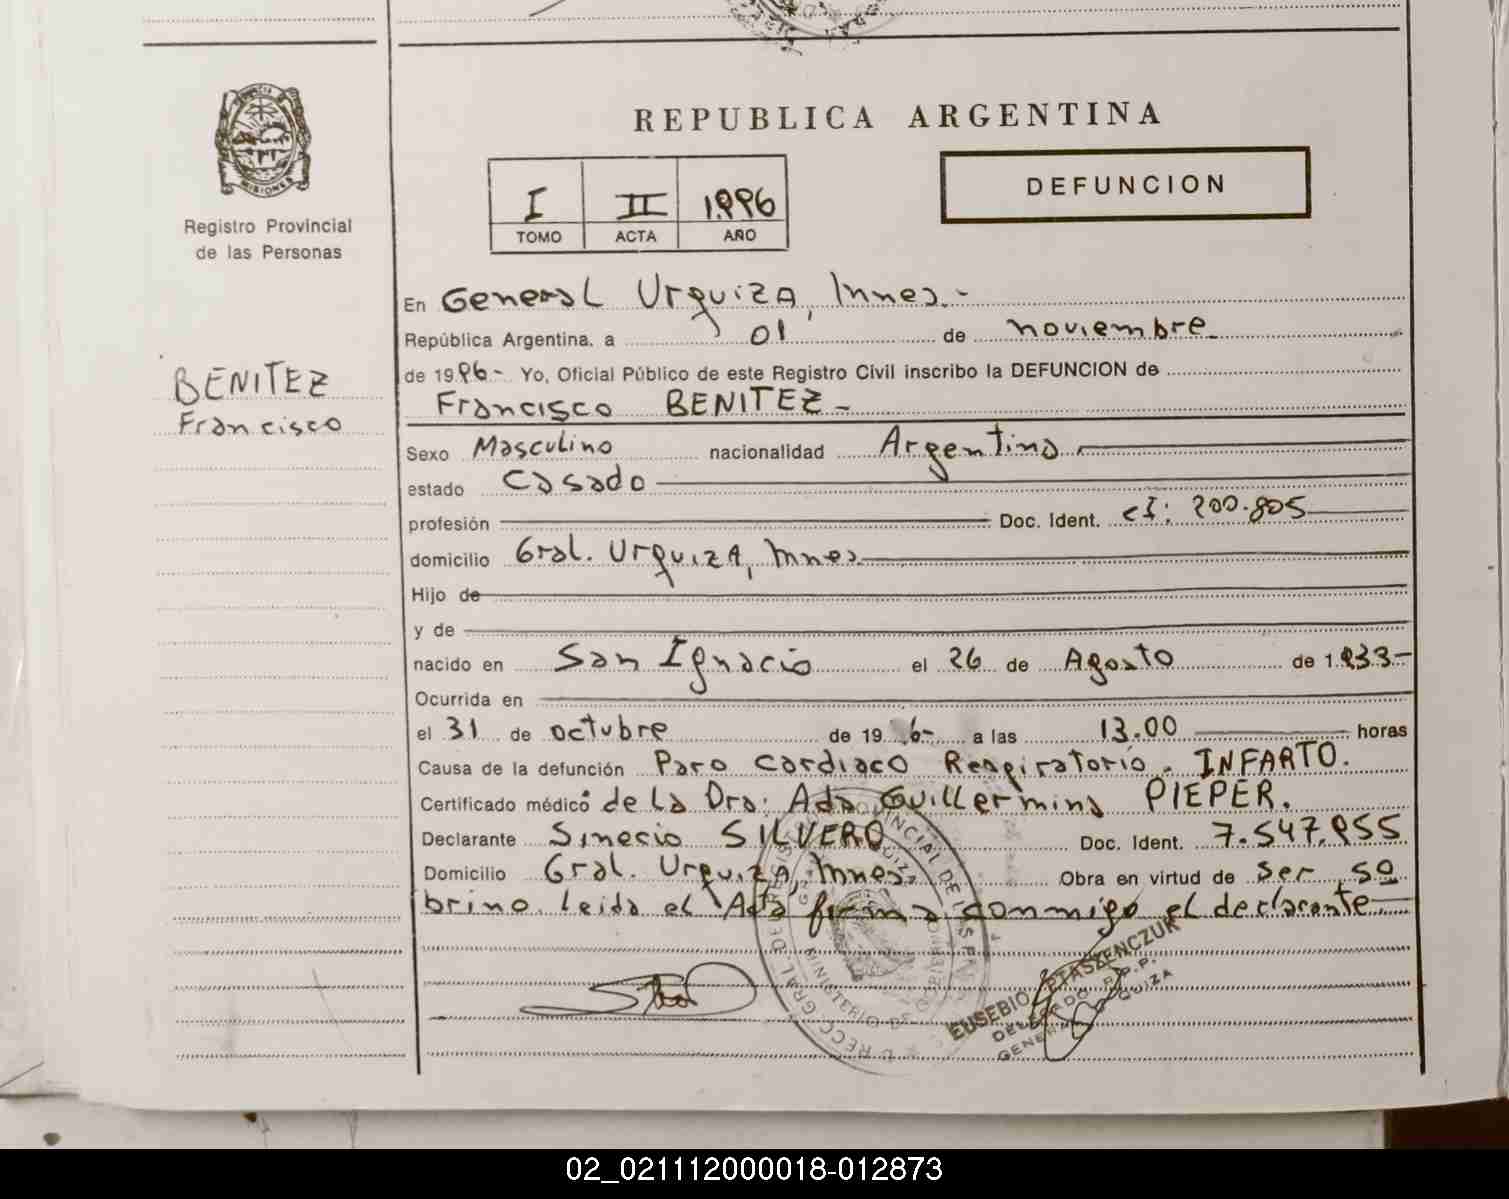 PROVINCIA DE
MISIONES
Registro Provincial
de las Personas
BENITEZ
Francisco
REPUBLICA ARGENTINA
I II 1.996
TOMO ACTA AÑO
DEFUNCION
En General Urquiza, Mnes.-
República Argentina, a 01 de noviembre
de 1996- Yo, Oficial Público de este Registro Civil inscribo la DEFUNCION de
Francisco BENITEZ-
Sexo Masculino nacionalidad Argentina
estado Casado
profesión Doc. Ident. CI: 200.805
domicilio Gral. Urquiza, Mnes
Hijo de
y de
nacido en San Ignacio el 26 de Agosto de 1.933-
Ocurrida en
el 31 de octubre de 19 6- a las 13.00 horas
Causa de la defunción Paro Cardiaco Respiratorio. INFARTO.
Certificado médico de la Dra: Ada Guillermina PIEPER.
Declarante Sinecio SILVERO Doc. Ident. 7.547.955
Domicilio Gral. Urquiza, Mnes Obra en virtud de ser so
brino. Leida el Acta firma conmigo el declarante
EUSEBIO PTASZENCZUK
DELEGADO R.P.P.
GENERAL URQUIZA
02_021112000018-012873